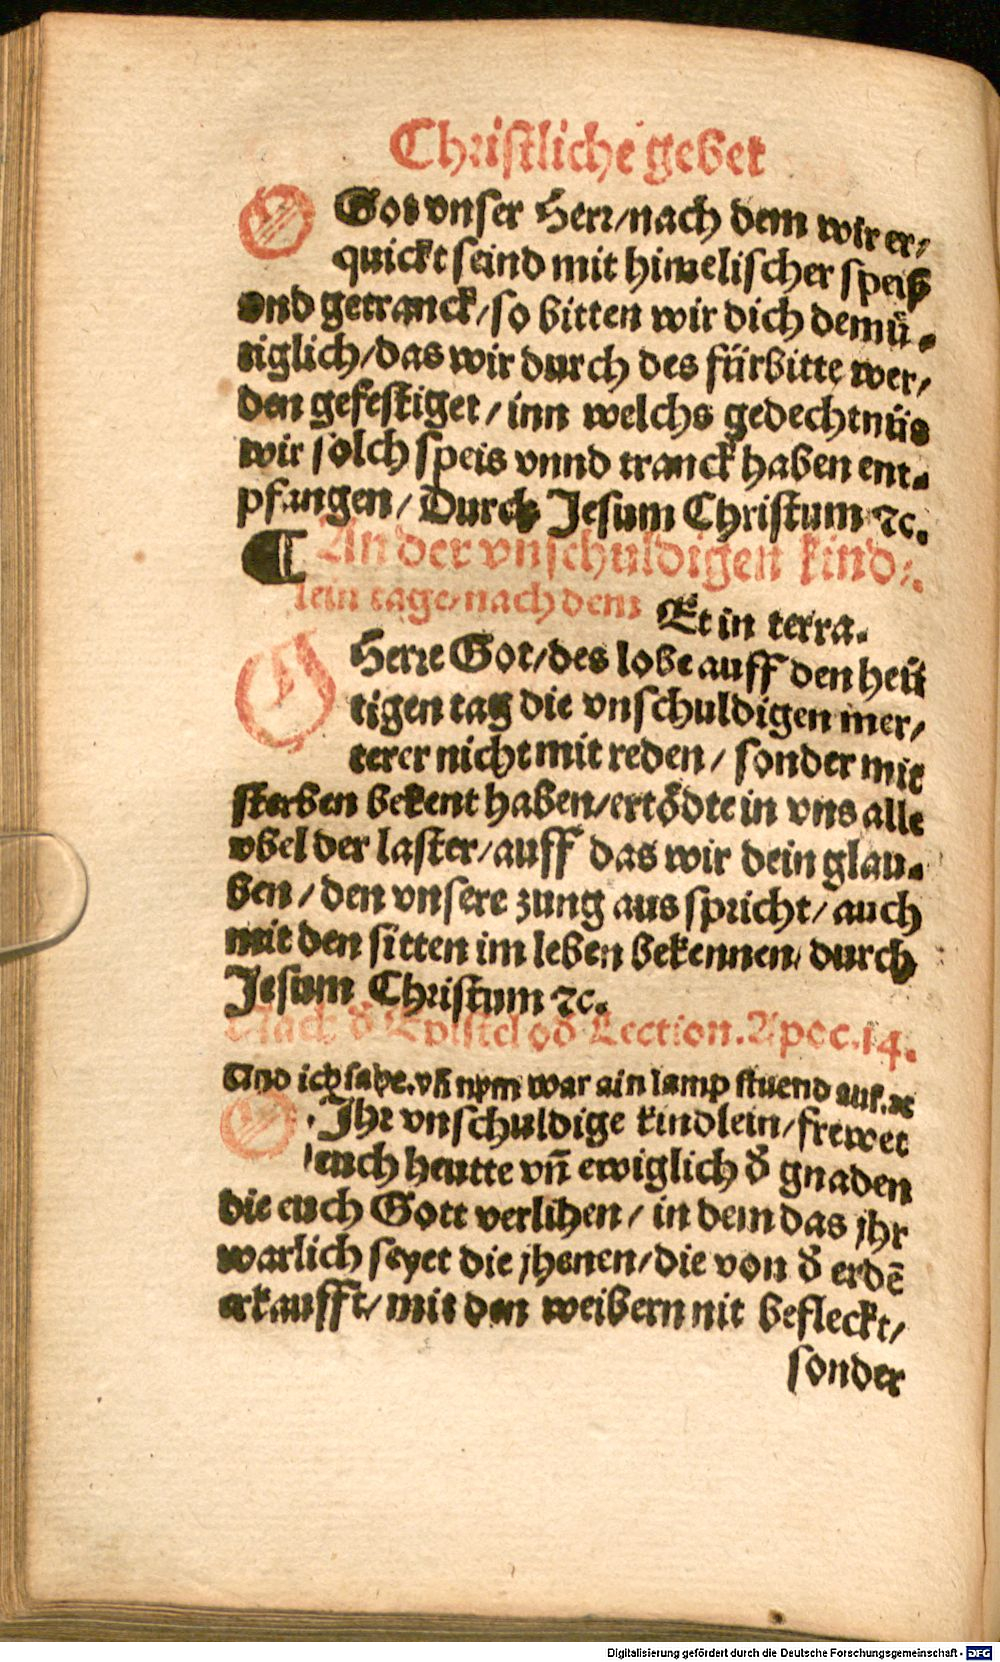 Christliche gebet
O Got vnser Herr/nach dem wir er/
quickt seind mit himelischer speiß
vnd getranck/so bitten wir dich demü-
tiglich/das wir durch des fürbitte wer/
den gefestiget/inn welchs gedechtnüs
wir solch speis vnnd tranck haben ent-
pfangen/Durch Jesum Christum ⁊c.
¶ An der vnschuldigen kind-
lein tage/nach dem Et in terra.
O Herre Got/des lobe auff den heü
tigen tag die vnschuldigen mer/
terer nicht mit reden/sonder mit
sterben bekent haben/ertödte in vns alle
vbel der laster/auff das wir dein glau-
ben/den vnsere zung aus spricht/auch
mit den sitten im leben bekennen/durch
Jesum Christum ⁊c.
Nach d̕ Epistel od̕ Lection. Apoc.14.
Und ich sahe.vñ nym war ain lamp stuend auf.⁊c
O Jhr vnschuldige kindlein/frewet
euch heutte vñ ewiglich d̕ gnaden
die euch Gott verlihen/in dem das jhr
warlich seyet die jhenen/die von d̕ erdē
erkaufft/mit den weibern nit befleckt/
sonder
Digitalisierung gefördert durch die Deutsche Forschungsgemeinschaft - DFG